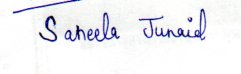 Saheela Junaid